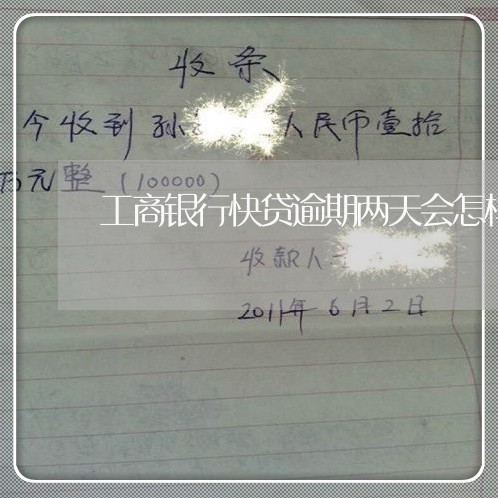 收条
今收到孙 人民币壹拾
万元整（100000）
工商银行快贷逾期两天会怎
收款人
2011年6月2日